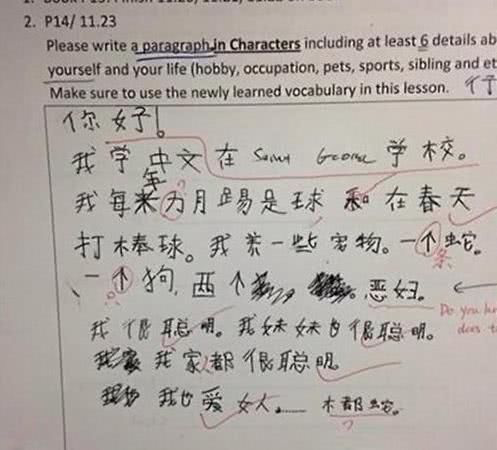 2. P14/ 11.23
Please write a paragraph in Characters including at least 6 details ab
yourself and your life (hobby, occupation, pets, sports, sibling and et
Make sure to use the newly learned vocabulary in this lesson.
你好!
我学中文在 George 学校。
年
我每 月踢足球和在春天
打棒球。我养一些宠物。一个蛇。
条
一个狗,两个 。恶妇。
Do you
does t
我很聪明。我妹妹也很聪明。
我家人都很聪明。
我也爱女人…… 都蛇。